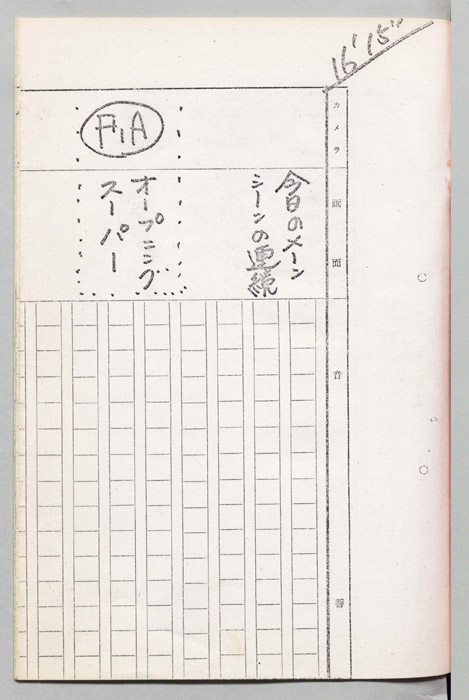 16'15"
カメラ
画面
音
今日のメーン
シーンの連続
オープニング
スーパー